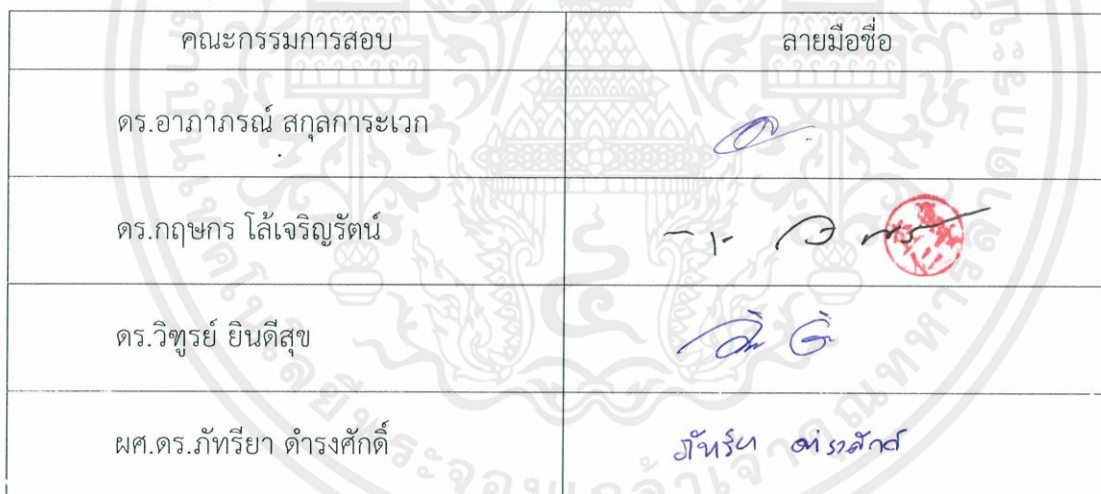 คณะกรรมการสอบ ลายมือชื่อ
ดร.อาภาภรณ์ สกุลการะเวก
ดร.กฤษกร โล้เจริญรัตน์
ดร.วิฑูรย์ ยินดีสุข
ผศ.ดร.ภัทรียา ดำรงศักดิ์ ภัทรียา ดำรงศักดิ์